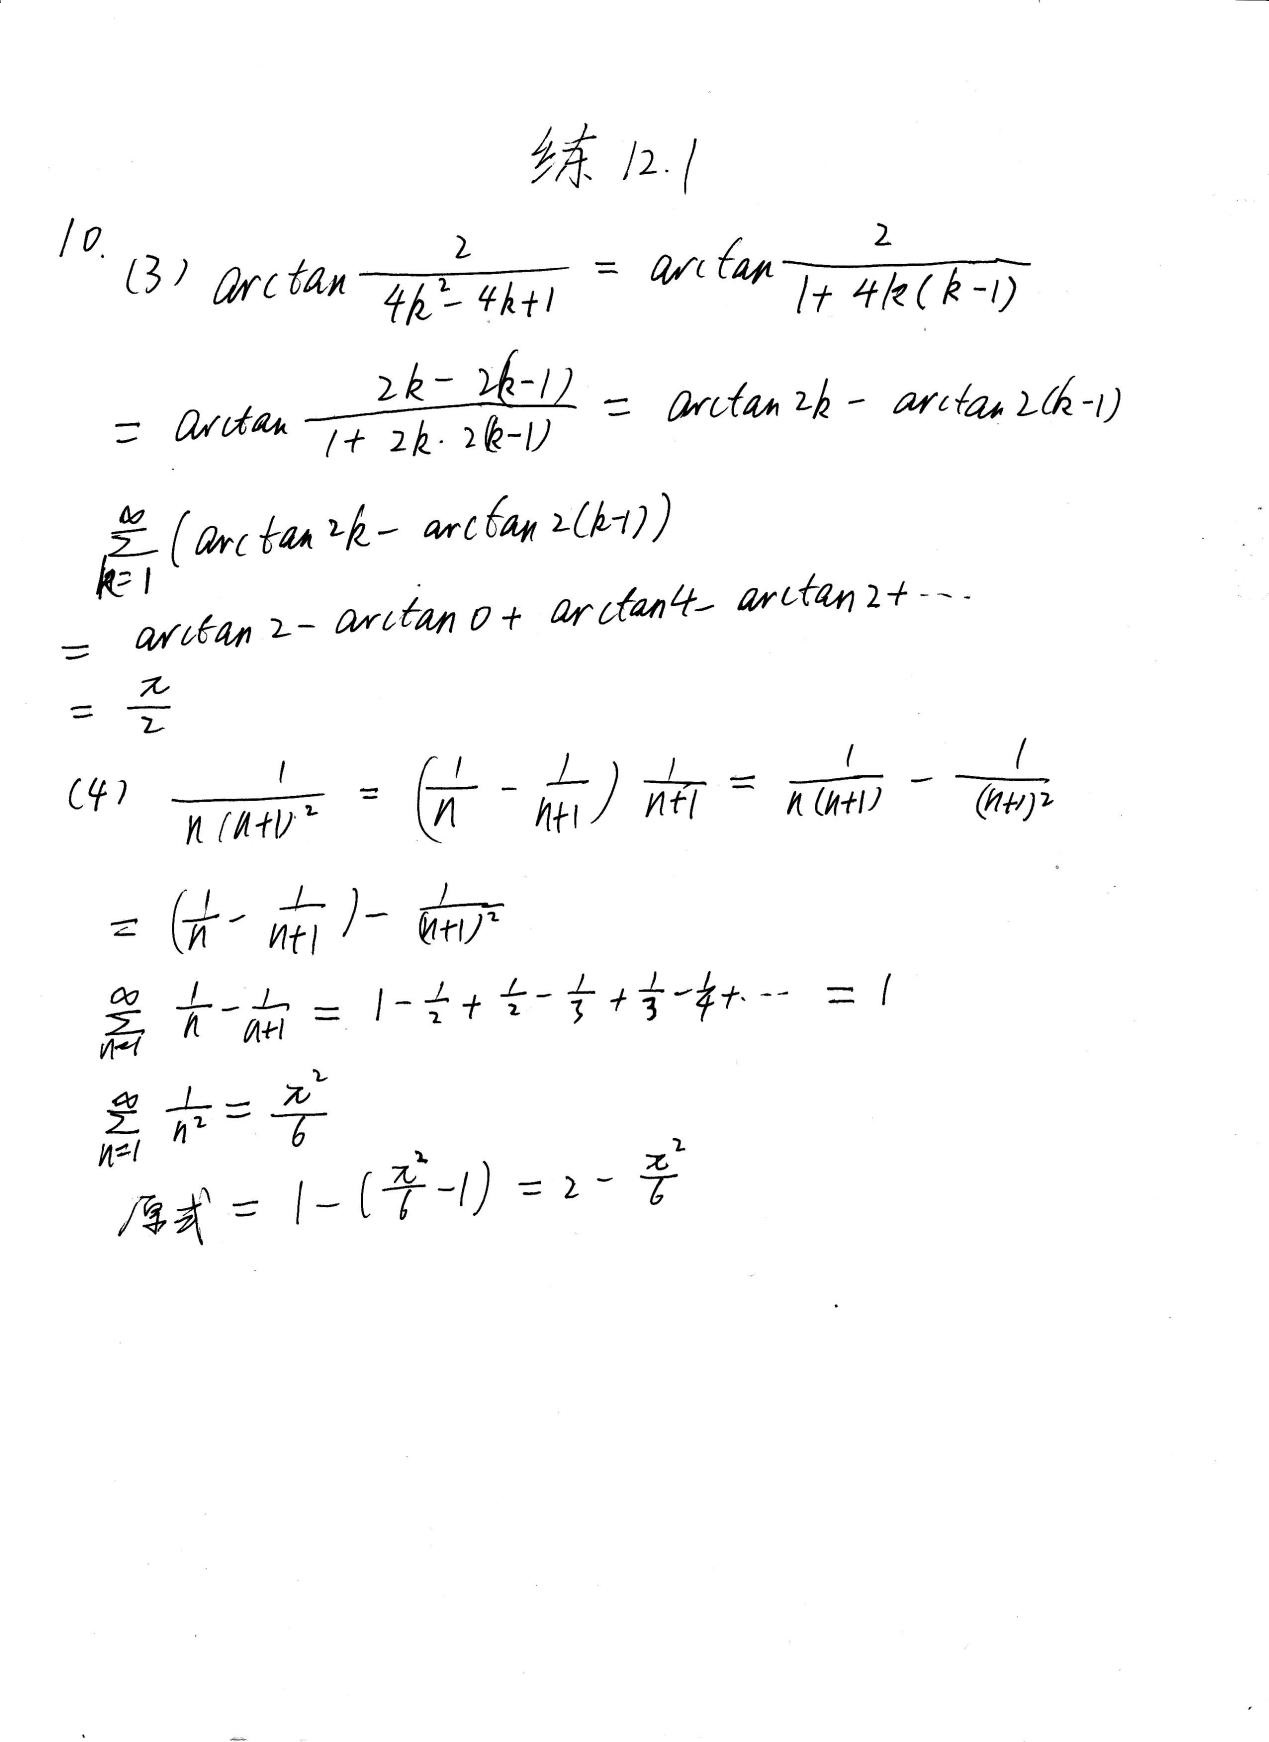 练 12.1
10.
(3) arctan 2/(4k²-4k+1) = arctan 2/(1+4k(k-1))
= arctan (2k-2(k-1))/(1+2k·2(k-1)) = arctan 2k - arctan 2(k-1)
∑_{k=1}^{∞} (arctan 2k - arctan 2(k-1))
= arctan 2 - arctan 0 + arctan 4 - arctan 2 + ···
= π/2
(4) 1/(n(n+1)²) = (1/n - 1/(n+1)) 1/(n+1) = 1/(n(n+1)) - 1/(n+1)²
= (1/n - 1/(n+1)) - 1/(n+1)²
∑_{n=1}^{∞} 1/n - 1/(n+1) = 1 - 1/2 + 1/2 - 1/3 + 1/3 - 1/4 + ··· = 1
∑_{n=1}^{∞} 1/n² = π²/6
原式 = 1 - (π²/6 - 1) = 2 - π²/6